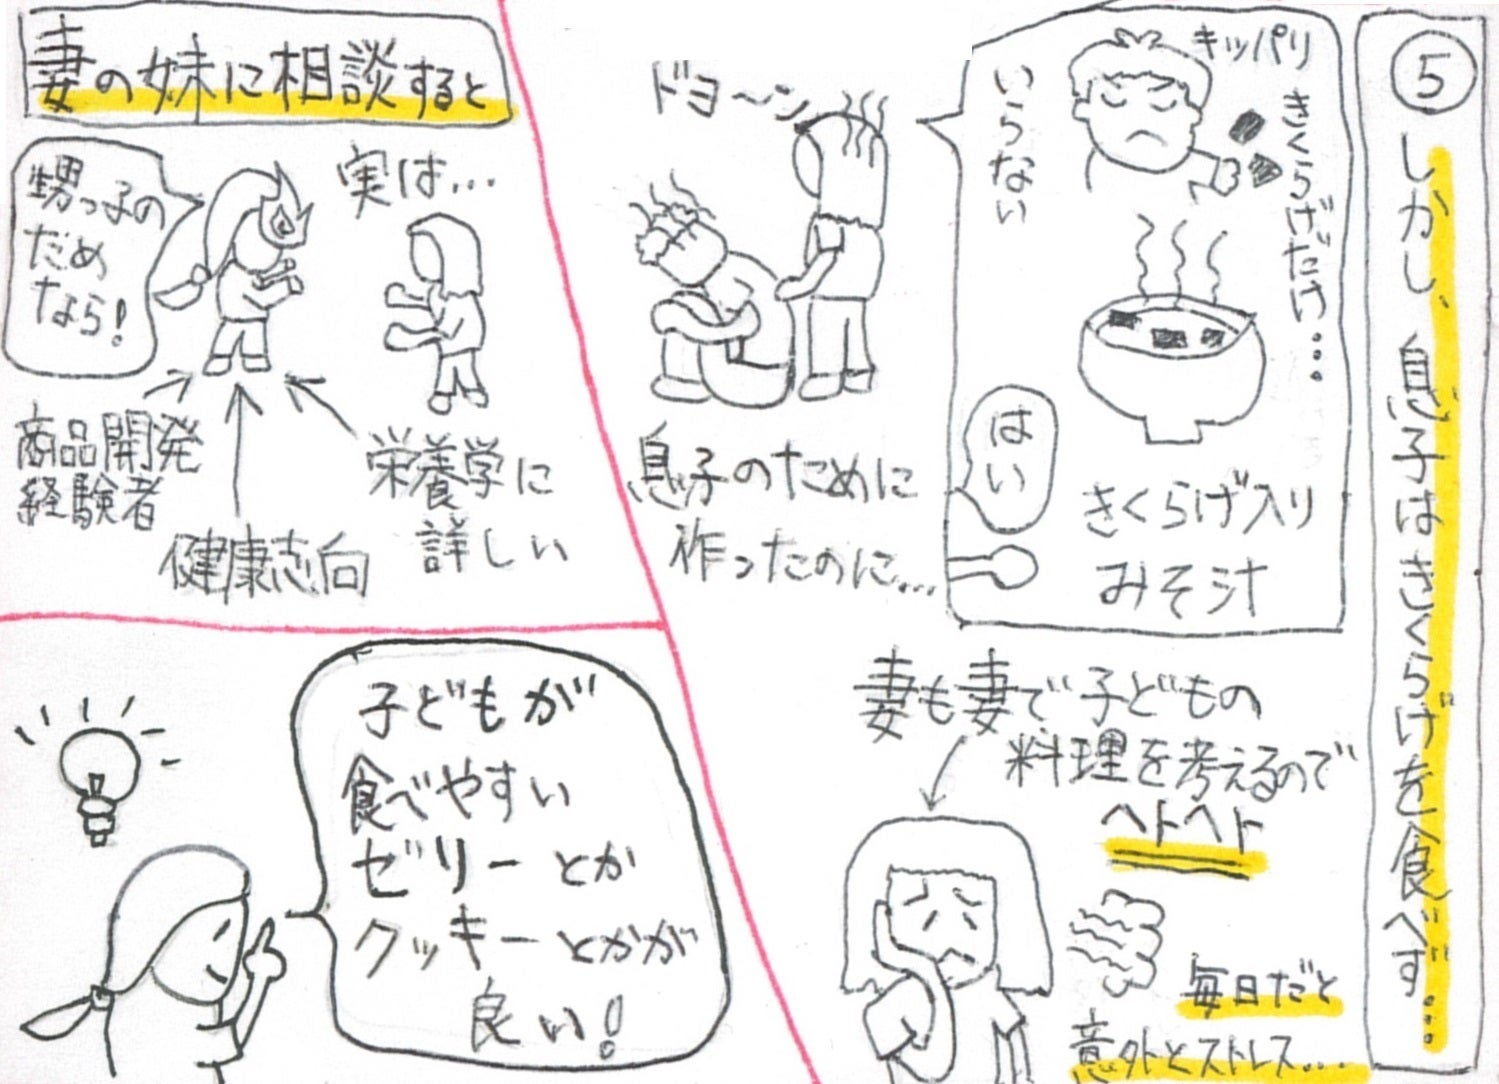 ⑤
しかし、息子はきくらげを食べず…
キッパリ
きくらげだけ…
いらない
はい
きくらげ入り
みそ汁
ドヨ〜ン
息子のために
作ったのに…
妻も妻で子どもの
料理を考えるので
ヘトヘト
毎日だと
意外とストレス…
妻の妹に相談すると
実は…
甥っ子の
だめ
なら!
商品開発
経験者
健康志向
栄養学に
詳しい
子どもが
食べやすい
ゼリーとか
クッキーとかが
良い!